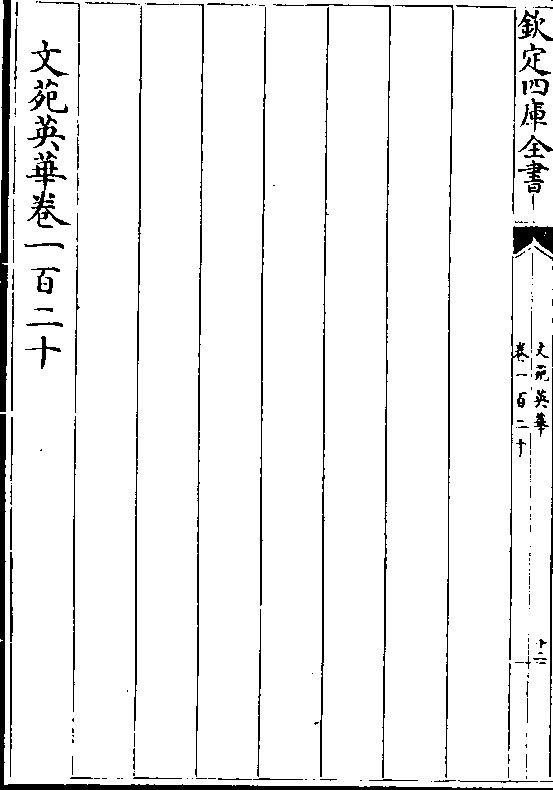 欽定四庫全書
文苑英華
卷一百二十
十二
文苑英華卷一百二十